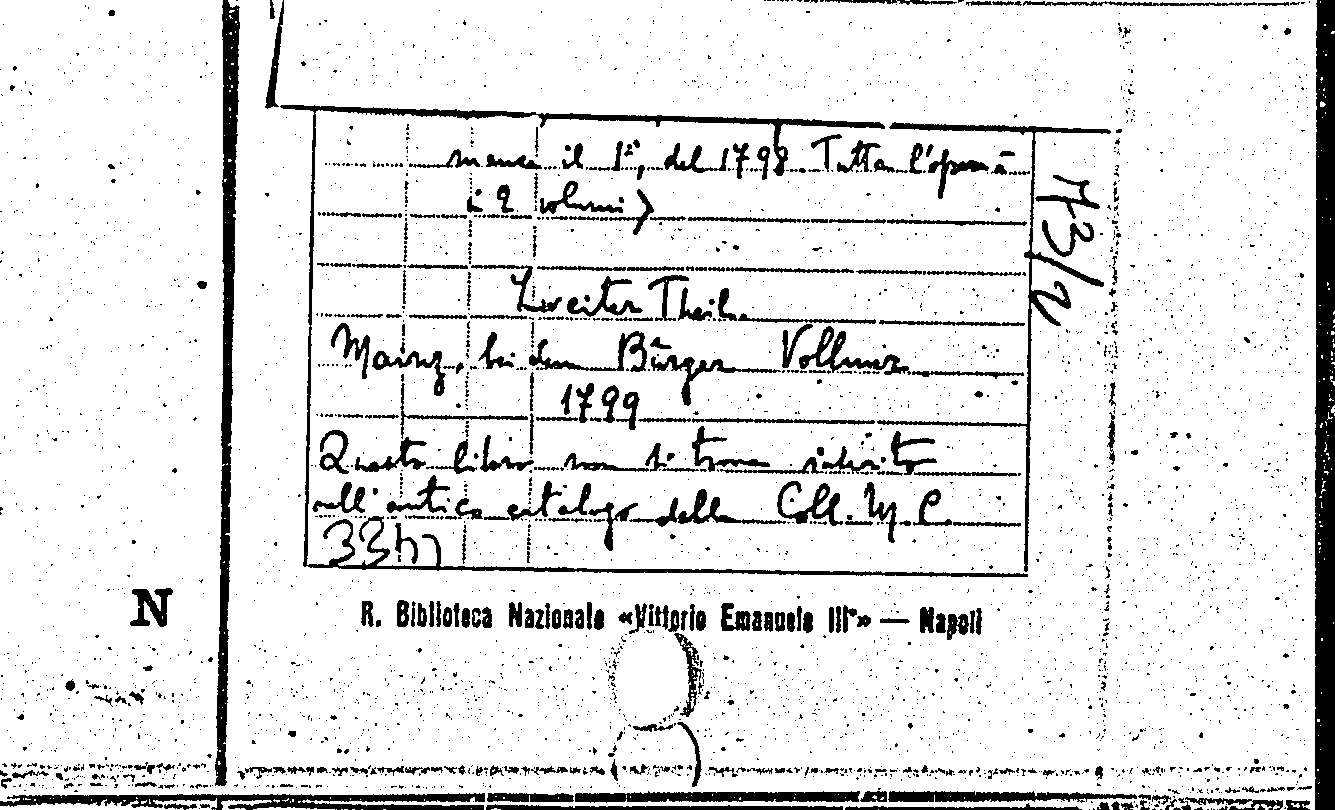 manca il 1º, del 1798. Tutta l'opera è
in 2 volumi)
Zweiter Theil.
Mainz, bei dem Bürger Vollmer
1799
Questo libro non si trova
nell'antico catalogo della Coll. M. C.
N
R. Biblioteca Nazionale «Vittorio Emanuele III°» — Napoli